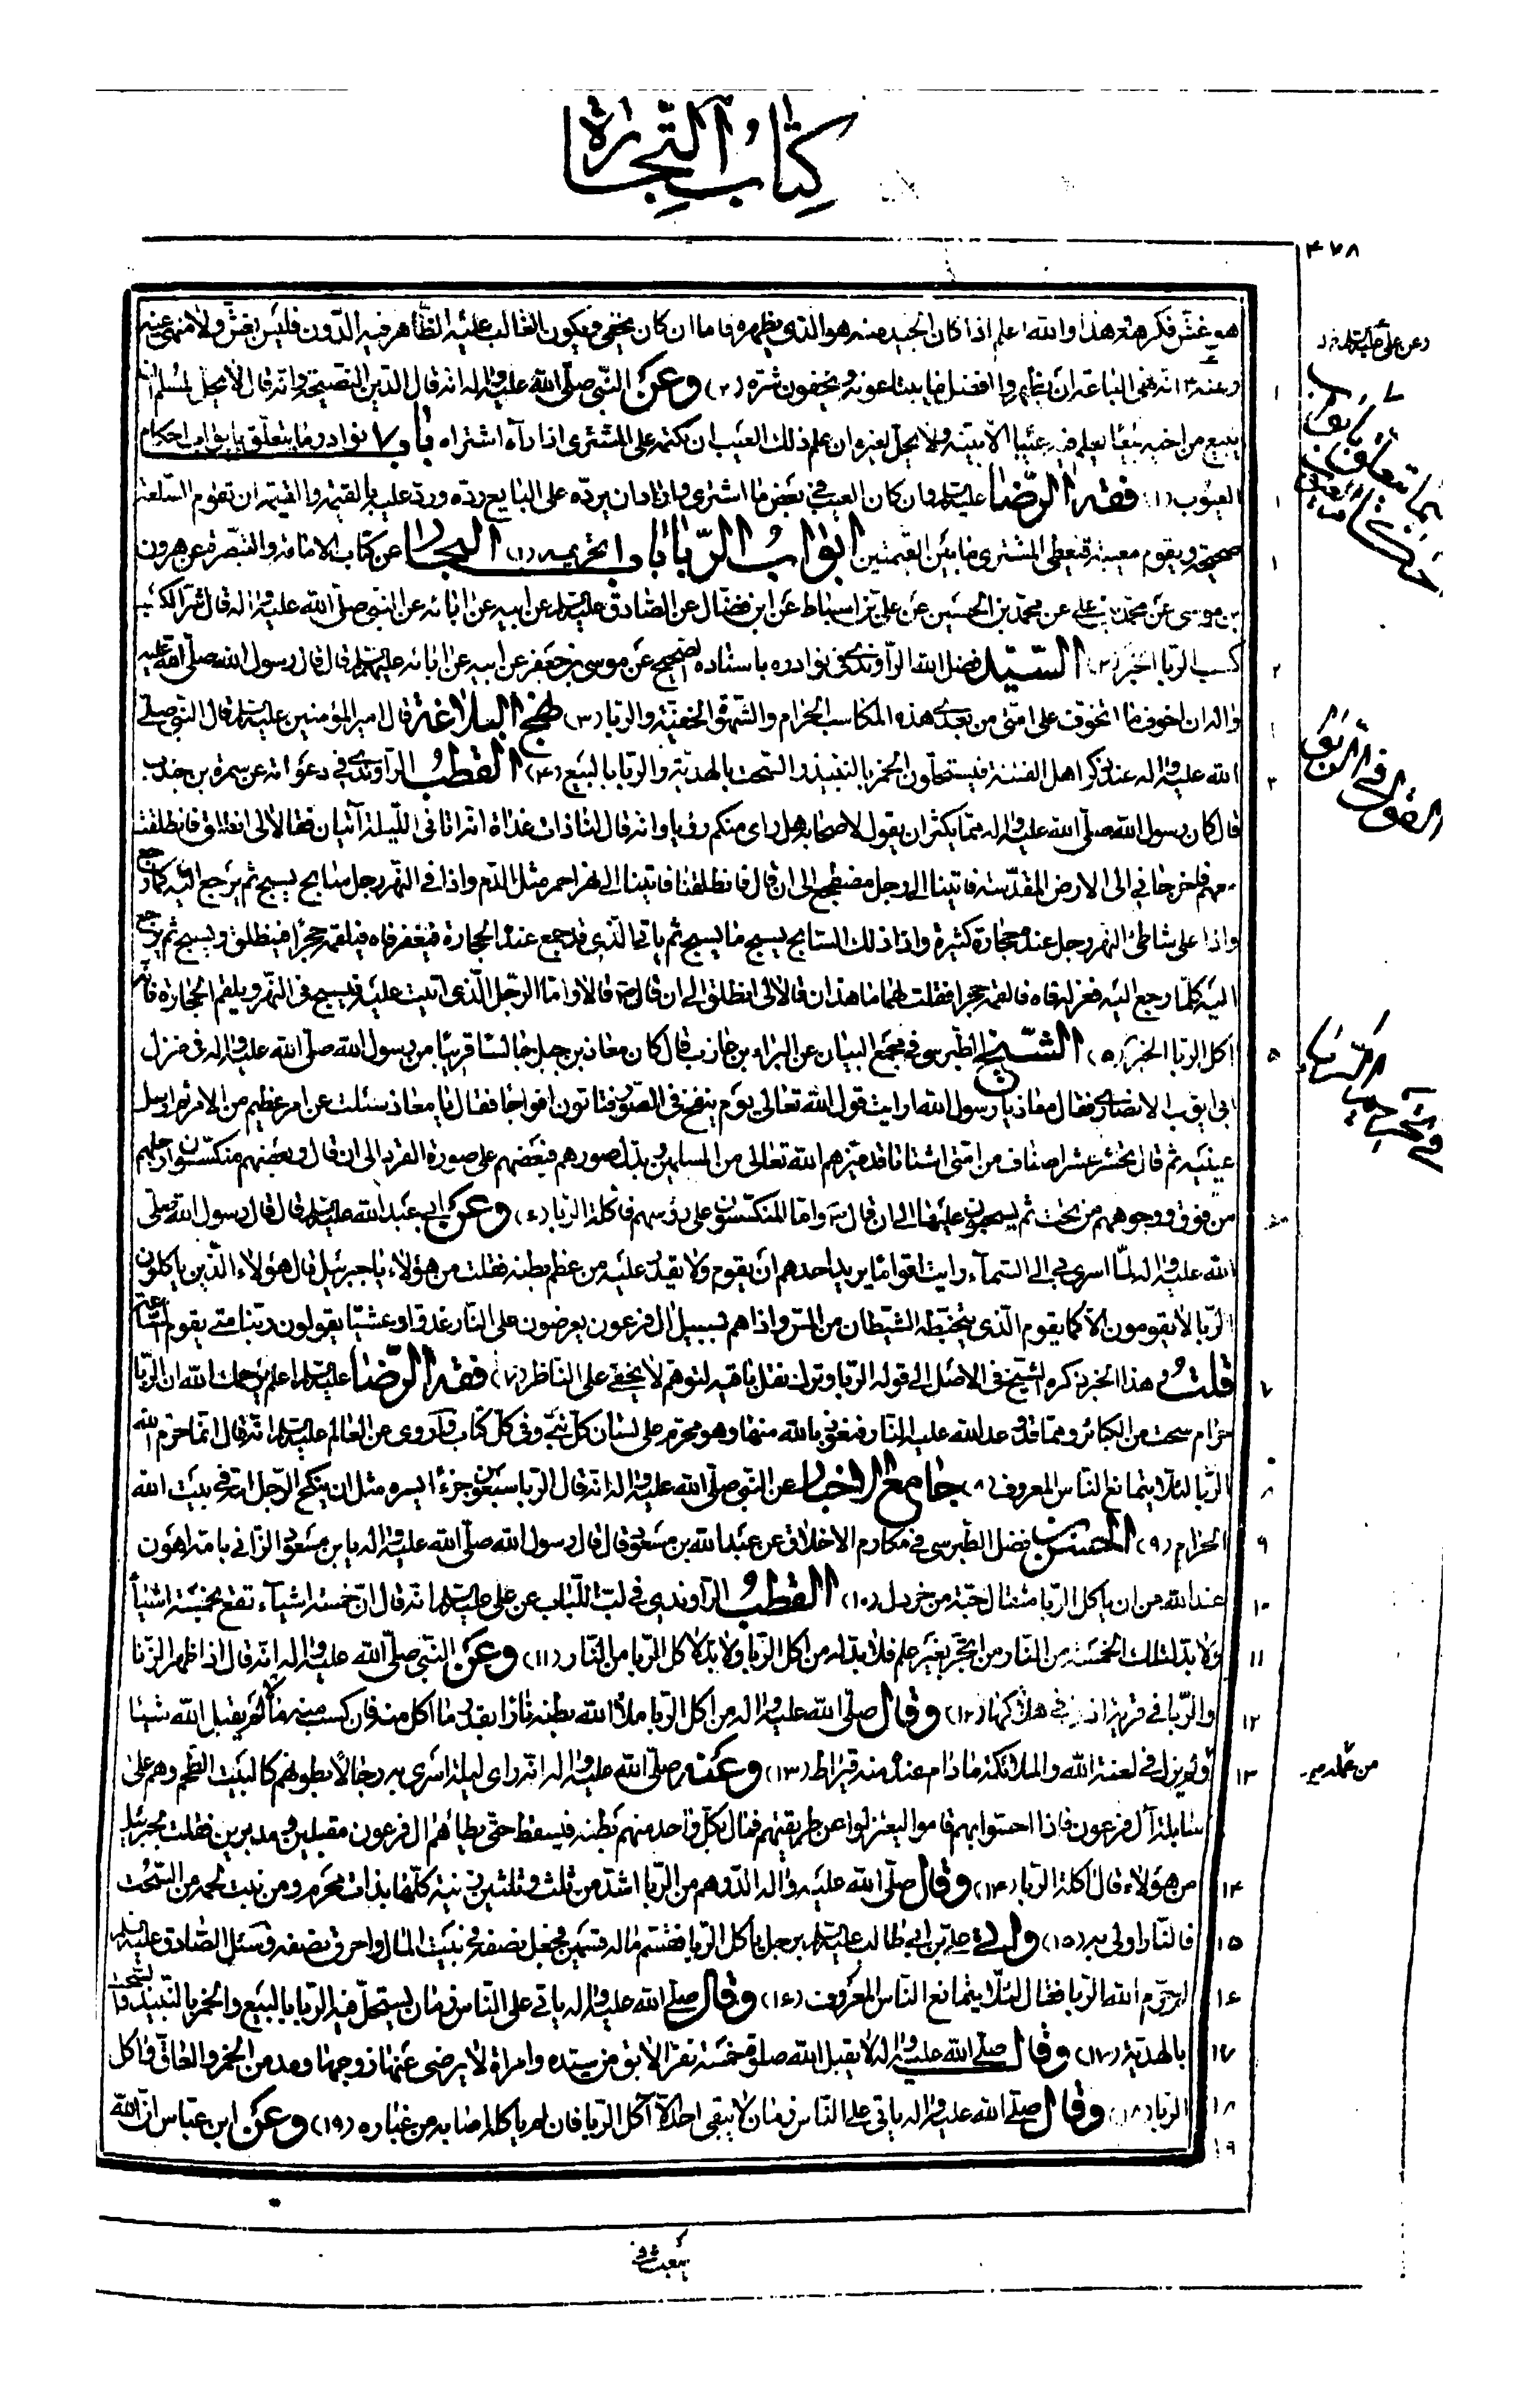 كتاب التجارة
٤٧٨
هو غش فكرهته هذا والله اعلم اذا كان الجيد منه هو الذي يظهره فاما ان كان يخفى ويكون الغالب عليه الظاهر فيه الدون فليس بغش ولا منهى عنه
وعنه انه نهى الباعة ان يظهروا افضل ما يبتاعونه ويخفون شره (٢) وعن النبي صلى الله عليه واله انه قال الدين النصيحة وانه قال لا يحل لمسلم ان
يبيع من اخيه بيعا يعلم فيه عيبا الا بينه ولا يحل لغيره ان علم ذلك العيب ان يكتمه على المشترى اذا رآه اشتراه باب ٧ نوادر ما يتعلق بابواب احكام
العيوب (١) فقه الرضا عليه السلام وان كان العيب فى بعض ما اشترى واراد ان يرده على البايع رده ورد عليه بالقيمة والقيمة ان تقوم السلعة
صحيحة ويقوم معيبة فيعطى المشترى ما بين القيمتين ابواب الربا باب ١ تحريمه (١) البحار عن كتاب الامامة والتبصرة عن هرون
بن موسى عن محمد بن علي عن محمد بن الحسين عن علي بن اسباط عن ابن فضال عن الصادق عليه السلام عن ابيه عن آبائه عن النبي صلى الله عليه واله قال شر الكسب
كسب الربا الخبر (٢) السيد فضل الله الراوندي فى نوادره باسناده الصحيح عن موسى بن جعفر عن ابيه عن آبائه عليهم السلام قال قال رسول الله صلى الله عليه
واله ان اخوف ما اتخوف على امتى من بعدي هذه المكاسب الحرام والشهوة الخفية والربا (٣) نهج البلاغة قال امير المؤمنين عليه السلام قال النبي صلى
الله عليه واله عند ذكر اهل الفتنة فيستحلون الخمر بالنبيذ والسحت بالهدية والربا بالبيع (٤) القطب الراوندي في دعواته عن سمرة بن جندب
قال كان رسول الله صلى الله عليه واله مما يكثر ان يقول لاصحابه هل راى منكم رؤيا وانه قال لنا ذات غداة انه اتانى الليلة آتيان فقالا لى انطلق فانطلقت
معهم فاخرجانى الى الارض المقدسة فاتينا الى رجل مضطجع الى ان قال فانطلقنا فاتينا الى نهر احمر مثل الدم واذا فى النهر رجل سابح يسبح ثم يرجع اليه كما رجع
واذا على شاطئ النهر رجل عنده حجارة كثيرة واذا ذلك السابح يسبح ما يسبح ثم ياتى الذي قد جمع عنده الحجارة فيفغر فاه فيلقمه حجرا فينطلق ويسبح ثم يرجع
اليه كلما رجع اليه فغر له فاه فالقمه حجرا فقلت لهما ما هذان قالا لى انطلق الى ان قال قالا واما الرجل الذى اتيت عليه فيسبح فى النهر ويلقم الحجارة فانه
اكل الربا الخبر (٥) الشيخ الطبرسي فى مجمع البيان عن البراء بن عازب قال كان معاذ بن جبل جالسا قريبا من رسول الله صلى الله عليه واله فى منزل
ابى ايوب الانصاري فقال معاذ يا رسول الله ارايت قول الله تعالى يوم ينفخ فى الصور فتاتون افواجا فقال يا معاذ سئلت عن امر عظيم من الامر ثم ارسل
عينيه ثم قال تحشر عشرة اصناف من امتى اشتاتا قد ميزهم الله تعالى من المسلمين وبدل صورهم فبعضهم على صورة القردة الى ان قال وبعضهم منكسون ارجلهم
من فوق ووجوههم من تحت ثم يسحبون عليها الى ان قال واما المنكسون على رؤسهم فاكلة الربا (٦) وعن ابي عبد الله عليه السلام قال قال رسول الله صلى
الله عليه واله لما اسري بي الى السماء رايت اقواما يريد احدهم ان يقوم ولا يقدر عليه من عظم بطنه فقلت من هؤلاء يا جبرئيل قال هؤلاء الذين ياكلون
الربا لا يقومون الا كما يقوم الذى يتخبطه الشيطان من المس واذا هم بسبيل ال فرعون يعرضون على النار غدوا وعشيا يقولون ربنا متى يقوم الساعة
قلت وهذا الخبر ذكره الشيخ فى الاصل الى قوله الربا وترك نقل باقيه لتوهم لا يخفى على الناظر (٧) فقه الرضا عليه السلام اعلم يرحمك الله ان الربا
حرام سحت من الكبائر ومما قد وعد الله عليه النار فنعوذ بالله منها وهو محرم على لسان كل نبي وفى كل كتاب وقد روى عن العالم عليه السلام انه قال انما حرم الله
الربا لئلا يتمانع الناس المعروف (٨) جامع الاخبار عن النبي صلى الله عليه واله انه قال الربا سبعون جزءا ايسره مثل ان ينكح الرجل امه فى بيت الله
الحرام (٩) الحسن بن فضل الطبرسى فى مكارم الاخلاق عن عبد الله بن مسعود قال قال رسول الله صلى الله عليه واله يا بن مسعود الزانى بامه اهون
عند الله من ان ياكل الربا مثقال حبة من خردل (١٠) القطب الراوندي فى لب اللباب عن على عليه السلام انه قال ان خمسة اشياء تقع بخمسة اشياء
ولا بد لتلك الخمسة من النار من اتجر بغير علم فلا بد له من اكل الربا ولا بد لاكل الربا من النار (١١) وعن النبي صلى الله عليه واله انه قال اذا ظهر الزنا
والربا فى قرية اذن فى هلاكها (١٢) وقال صلى الله عليه واله من اكل الربا ملأ الله بطنه نارا بقدر ما اكل منه فان كسب منه مالا لم يقبل الله شيئا
ولم يزل فى لعنة الله والملائكة مادام عنده منه قيراط (١٣) وعنه صلى الله عليه واله انه راى ليلة اسري به رجالا بطونهم كالبيت الظخم وهم على
سابلة آل فرعون فاذا احسوا بهم قاموا ليعتزلوا عن طريقهم فمال بكل واحد منهم بطنه فيسقط حتى يطاهم ال فرعون مقبلين ومدبرين فقلت لجبرئيل
من هؤلاء قال اكلة الربا (١٤) وقال صلى الله عليه واله الدرهم من الربا اشد من ثلث وثلثين زنية كلها بذات محرم ومن نبت لحمه من السحت
فالنار اولى به (١٥) واتى علي بن ابي طالب عليه السلام برجل ياكل الربا فقسم ماله قسمين فجعل نصفه فى بيت المال واحرق نصفه وسئل الصادق عليه السلام
لم حرم الله الربا فقال لئلا يتمانع الناس المعروف (١٦) وقال صلى الله عليه واله ياتى على الناس زمان يستحل فيه الربا بالبيع والخمر بالنبيذ والسحت
بالهدية (١٧) وقال صلى الله عليه واله لا يقبل الله صلوة خمسة نفر الابق من سيده وامراة لا يرضى عنها زوجها ومدمن الخمر والعاق واكل
الربا (١٨) وقال صلى الله عليه واله ياتى على الناس زمان لا يبقى احد الا آكل الربا فان لم ياكله اصابه من غباره (١٩) وعن ابن عباس ان الله
القول في الربا
من عمله
يبعث